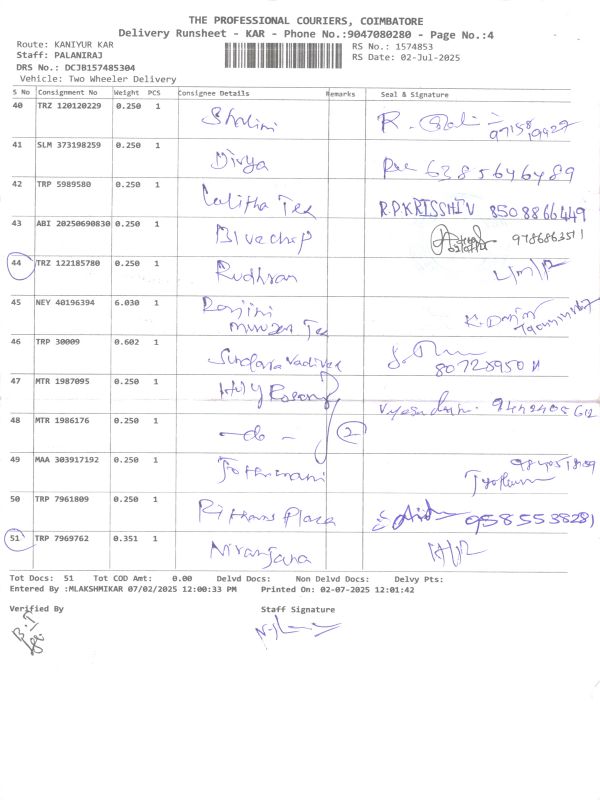 THE PROFESSIONAL COURIERS, COIMBATORE
Delivery Runsheet - KAR - Phone No.:9047080280 - Page No.:4
Route: KANIYUR KAR
Staff: PALANIRAJ
DRS No.: DCJB157485304
Vehicle: Two Wheeler Delivery
RS No.: 1574853
RS Date: 02-Jul-2025
S No Consignment No Weight PCS Consignee Details Remarks Seal & Signature
40 TRZ 120120229 0.250 1 Shalini R.
41 SLM 373198259 0.250 1 Divya 6385646489
42 TRP 5989580 0.250 1 Lalitha Tex R.P.KRISSHIV 8508866449
43 ABI 20250690830 0.250 1 Bluechip 9786863511
44 TRZ 122185780 0.250 1 Rudhran
45 NEY 40196394 6.030 1 Ranjini
Tex
46 TRP 30009 0.602 1 Sundara Vadivel
47 MTR 1987095 0.250 1
48 MTR 1986176 0.250 1 -do- 2
49 MAA 303917192 0.250 1 Jothimani
50 TRP 7961809 0.250 1 Plaza 9585538281
51 TRP 7969762 0.351 1 Niranjana
Tot Docs: 51 Tot COD Amt: 0.00 Delvd Docs: Non Delvd Docs: Delvy Pts:
Entered By :MLAKSHMIKAR 07/02/2025 12:00:33 PM Printed On: 02-07-2025 12:01:42
Verified By Staff Signature